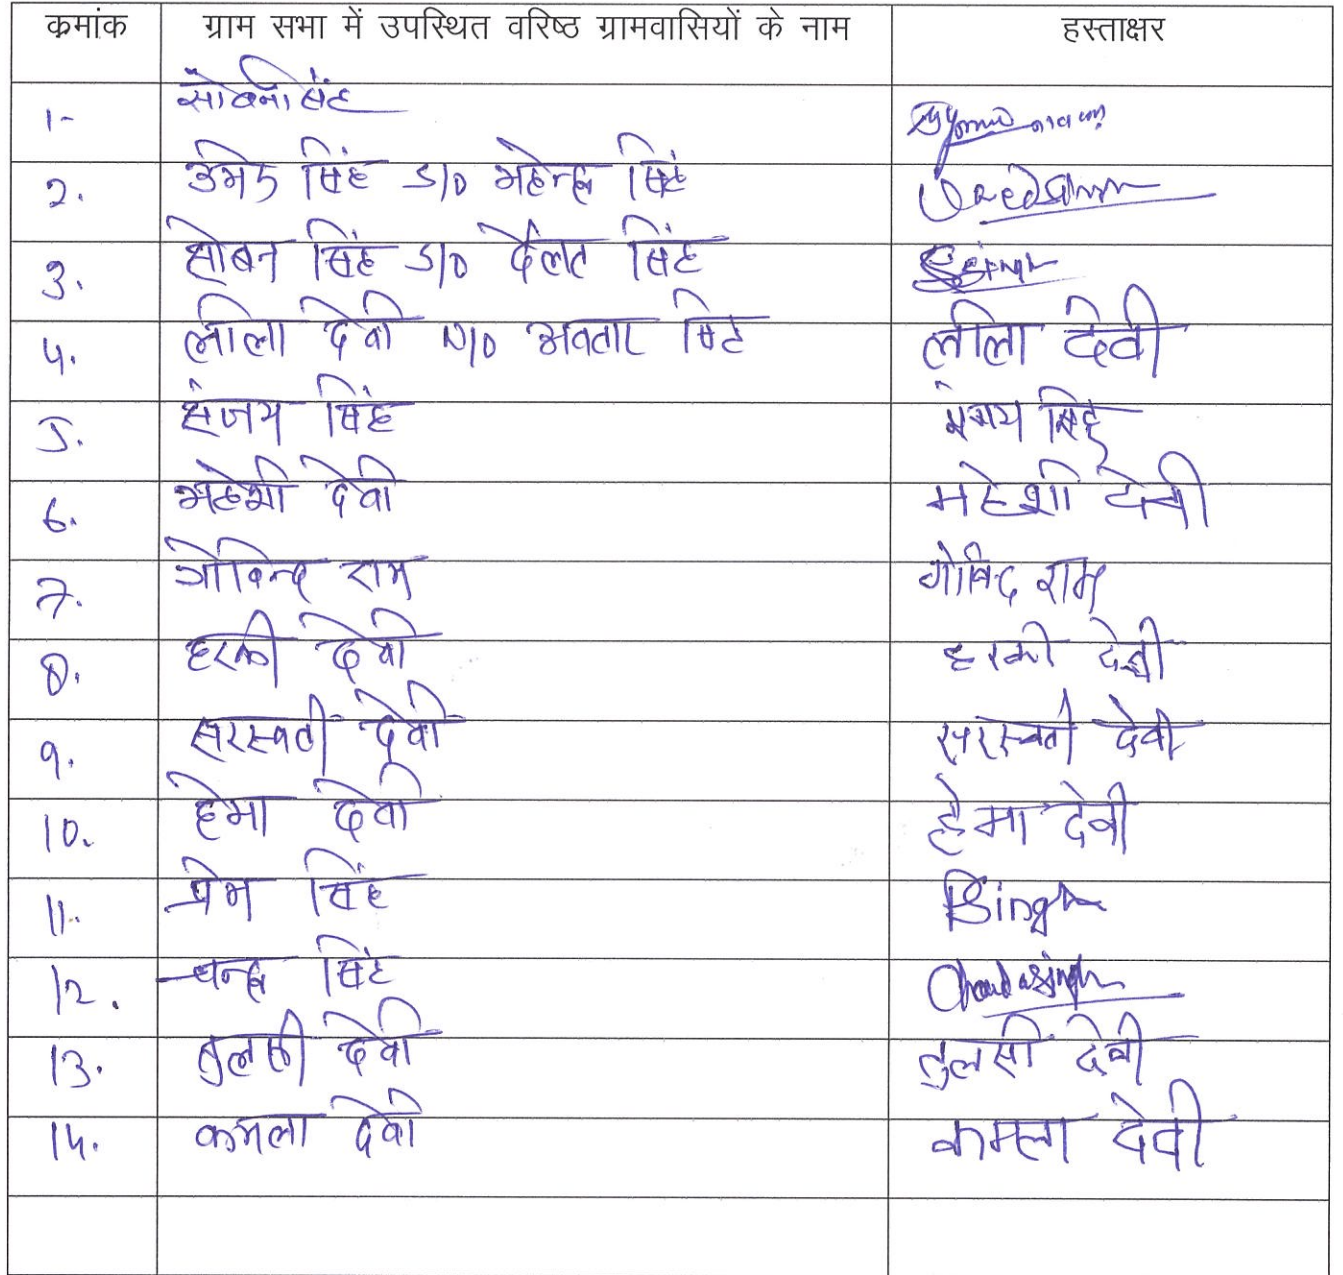 क्रमांक ग्राम सभा में उपस्थित वरिष्ठ ग्रामवासियों के नाम हस्ताक्षर
1- सिंह
2. उमेद सिंह S/O महेन्द्र सिंह
3. सोबन सिंह S/O दौलत सिंह Singh
4. लीला देवी W/O अवतार सिंह लीला देवी
5. संजय सिंह संजय सिंह
6. महेशी देवी महेशी देवी
7. गोविन्द राम गोविंद राम
8. हरकी देवी हरकी देवी
9. सरस्वती देवी सरस्वती देवी
10. हेमा देवी हेमा देवी
11. प्रेम सिंह PSingh
12. चन्द्र सिंह Chandra Singh
13. तुलसी देवी तुलसी देवी
14. कमला देवी कमला देवी